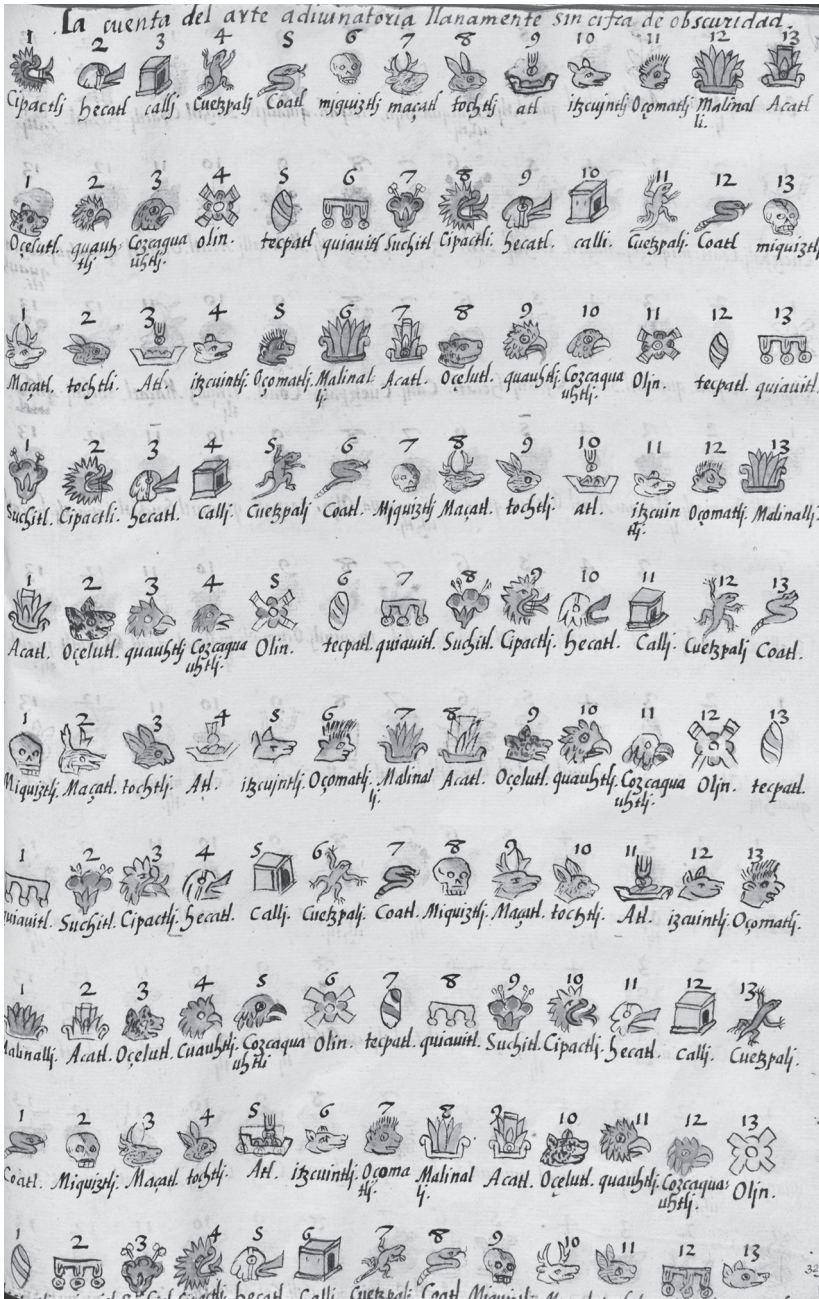 La cuenta del arte adiuinatoria llanamente sin cifra de obscuridad.
1 2 3 4 5 6 7 8 9 10 11 12 13
Cipactlj hecatl callj Cuetzpalj Coatl mjquiztlj maçatl tochtlj atl itzcujntlj Oçomatlj Malinal Acatl
li.
1 2 3 4 5 6 7 8 9 10 11 12 13
Oçelutl. quauh- Cozcaqua olin. tecpatl quiauitl Suchitl Cipactli. hecatl. calli. Cuetzpalj. Coatl miquiztlj
tlj uhtlj.
1 2 3 4 5 6 7 8 9 10 11 12 13
Maçatl. tochtli. Atl. itzcuintlj Oçomatlj. Malinal- Acatl. Oçelutl. quauhtlj. Cozcaqua Oljn. tecpatl. quiauitl.
lj. uhtlj.
1 2 3 4 5 6 7 8 9 10 11 12 13
Suchitl. Cipactli. hecatl. Callj. Cuetzpalj Coatl. Mjquiztlj Maçatl. tochtlj. atl. itzcuin Oçomatlj. Malinallj.
tlj.
1 2 3 4 5 6 7 8 9 10 11 12 13
Acatl. Oçelutl. quauhtlj Cozcaqua Olin. tecpatl. quiauitl. Suchitl. Cipactlj. hecatl. Callj. Cuetzpalj Coatl.
uhtlj.
1 2 3 4 5 6 7 8 9 10 11 12 13
Miquiztlj. Maçatl. tochtlj. Atl. itzcujntlj. Oçomatlj. Malinal Acatl. Oçelutl. quauhtlj. Cozcaqua Oljn. tecpatl.
lj. uhtlj.
1 2 3 4 5 6 7 8 9 10 11 12 13
uiauitl. Suchitl. Cipactlj. hecatl. Callj. Cuetzpalj. Coatl. Miquiztlj. Maçatl. tochtlj. Atl. itzcuintlj. Oçomatlj.
1 2 3 4 5 6 7 8 9 10 11 12 13
Malinallj. Acatl. Oçelutl. Cuauhtlj. Cozcaqua Olin. tecpatl. quiauitl. Suchitl. Cipactlj. hecatl. callj. Cuetzpalj.
uhtli
1 2 3 4 5 6 7 8 9 10 11 12 13
Coatl. Miquiztlj. Maçatl. tochtlj. Atl. itzcuintlj. Oçoma Malinal Acatl. Oçelutl. quauhtlj. Cozcaqua- Oljn.
tlj. lj. uhtlj.
1 2 3 4 5 6 7 8 9 10 11 12 13
Cipactlj hecatl Calli Cuetzpalj Coatl Miquiztlj